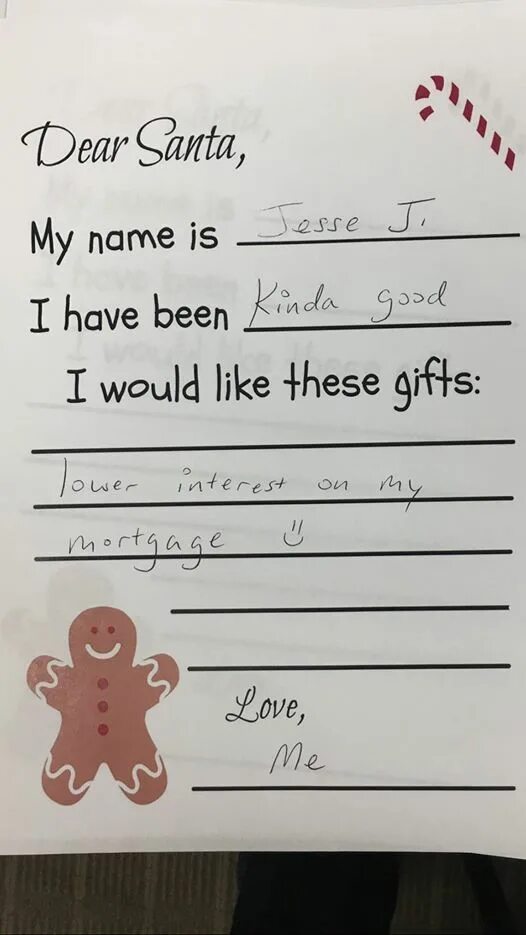 Dear Santa,
My name is Jesse J.
I have been Kinda good
I would like these gifts:
lower interest on my
mortgage =)
Love,
Me